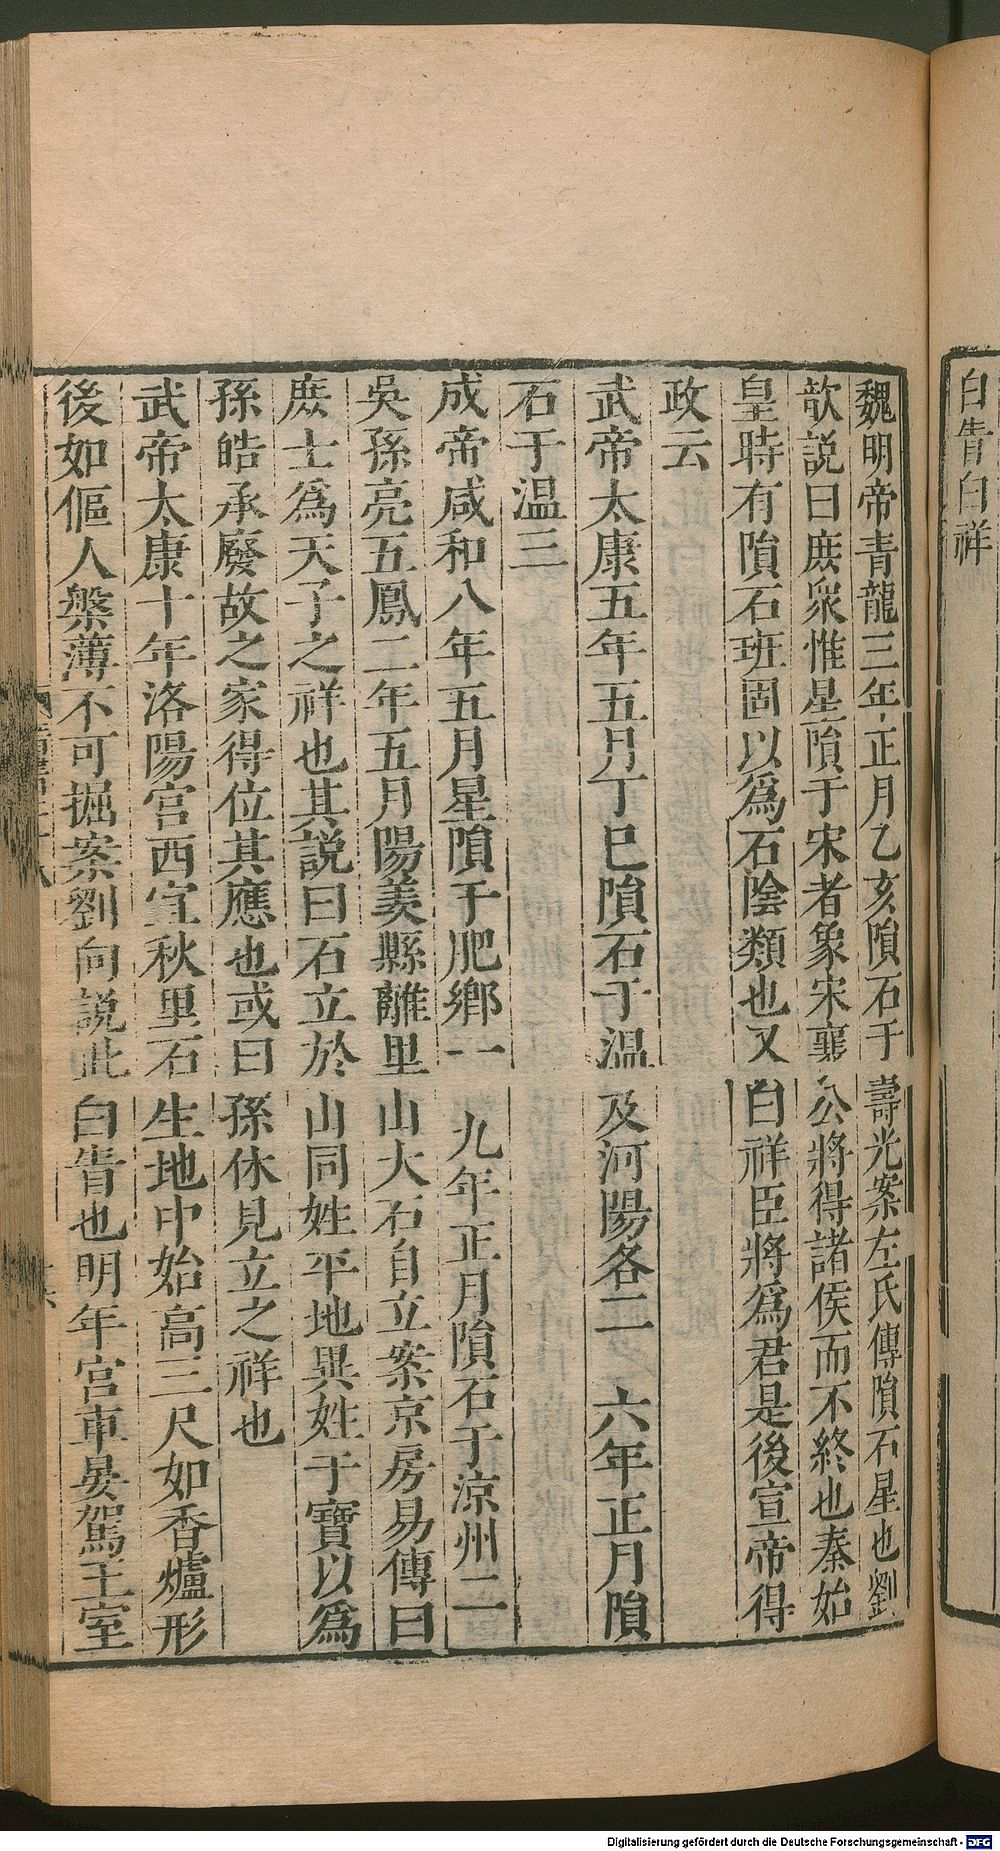 白眚白祥
魏明帝青龍三年正月乙亥隕石于壽光案左氏傳隕石星也劉
歆説曰庶衆惟星隕于宋者象宋襄公將得諸侯而不終也秦始
皇時有隕石班固以爲石陰類也又白祥臣將爲君是後宣帝得
政云
武帝太康五年五月丁巳隕石于温及河陽各二 六年正月隕
石于温三
成帝咸和八年五月星隕于肥鄉一 九年正月隕石于涼州二
吳孫亮五鳳二年五月陽羨縣離里山大石自立案京房易傳曰
庶士爲天子之祥也其説曰石立於山同姓平地異姓干寶以爲
孫皓承廢故之家得位其應也或曰孫休見立之祥也
武帝太康十年洛陽宫西宜秋里石生地中始高三尺如香爐形
後如傴人槃薄不可掘案劉向説此白眚也明年宫車晏駕王室
Digitalisierung gefördert durch die Deutsche Forschungsgemeinschaft - DFG